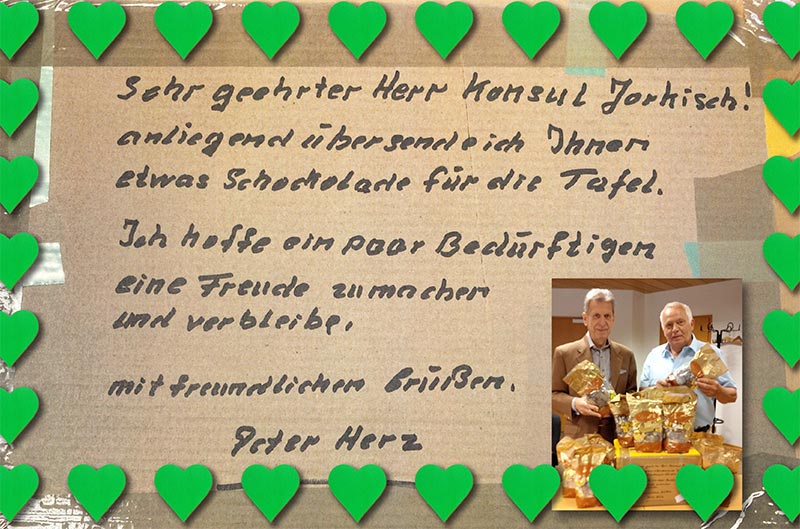 Sehr geehrter Herr Konsul Jorkisch!
anliegend übersende ich Ihnen
etwas Schockolade für die Tafel.
Ich hoffe ein paar Bedürftigen
eine Freude zumachen
und verbleibe.
mit freundlichen Grüßen.
Peter Herz